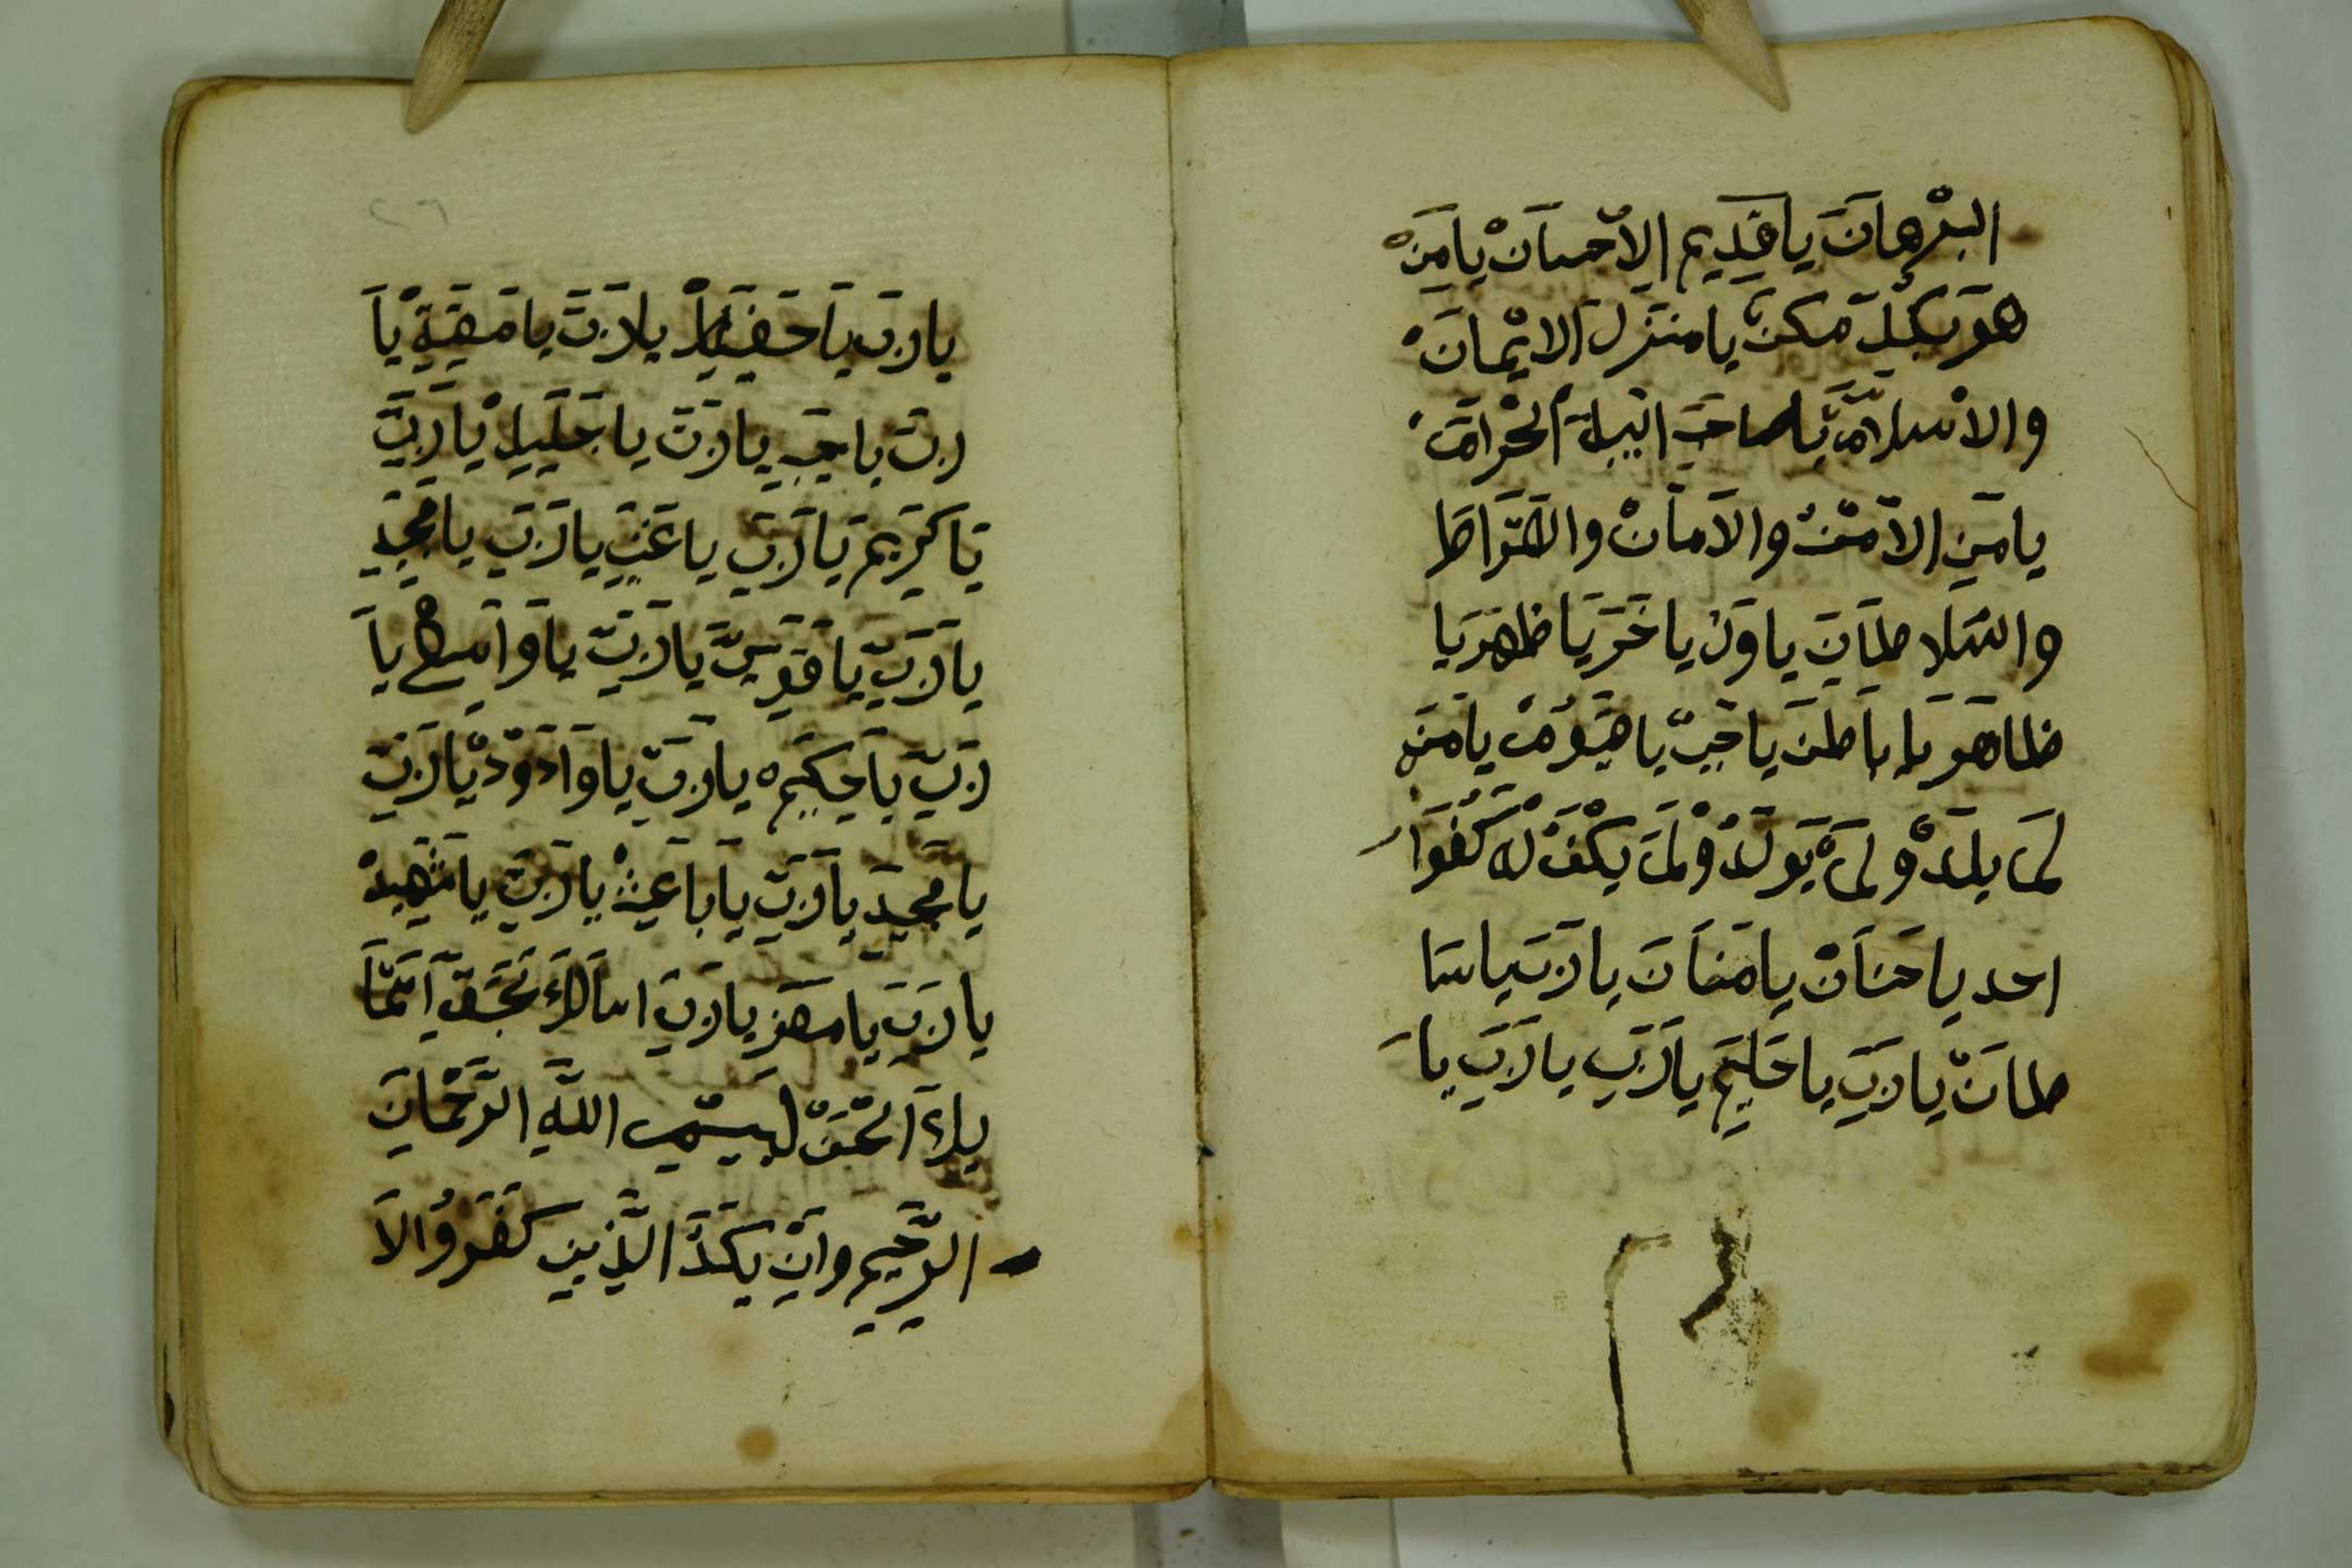 البرهان يا قديم الاحسان يا من
هو بكل مكن يا منزل الايمان
والاسلام يا صاحب البيلة الحرام
يا من الامن والامان والصراط
والسلا طان يا ول يا خر يا ظهر يا
ظاهو يا باطن يا حي يا قيوم يا من
لم يلد ولم يولد ولم يكن له كفوا
احد يا حنان يا منان يا رب يا سا
طان يا رب يا حليم يا رب يا رب يا
يا رب يا حفيظ يا رب يا مقيت يا
رب يا حب يا رب يا جليل يا رب
يا كريم يا رب يا غني يا رب يا مجيد
يا رب يا قوي يا رب يا واسع يا
رب يا حكيم يا رب يا وادود يا رب
يا مجيد يا رب يا باعث يا رب يا شهيد
يا رب يا معز يا رب اسالك بحق
الحق بسم الله الرحمان
الرحيم وان يكد الذين كفروا لا
٢٦